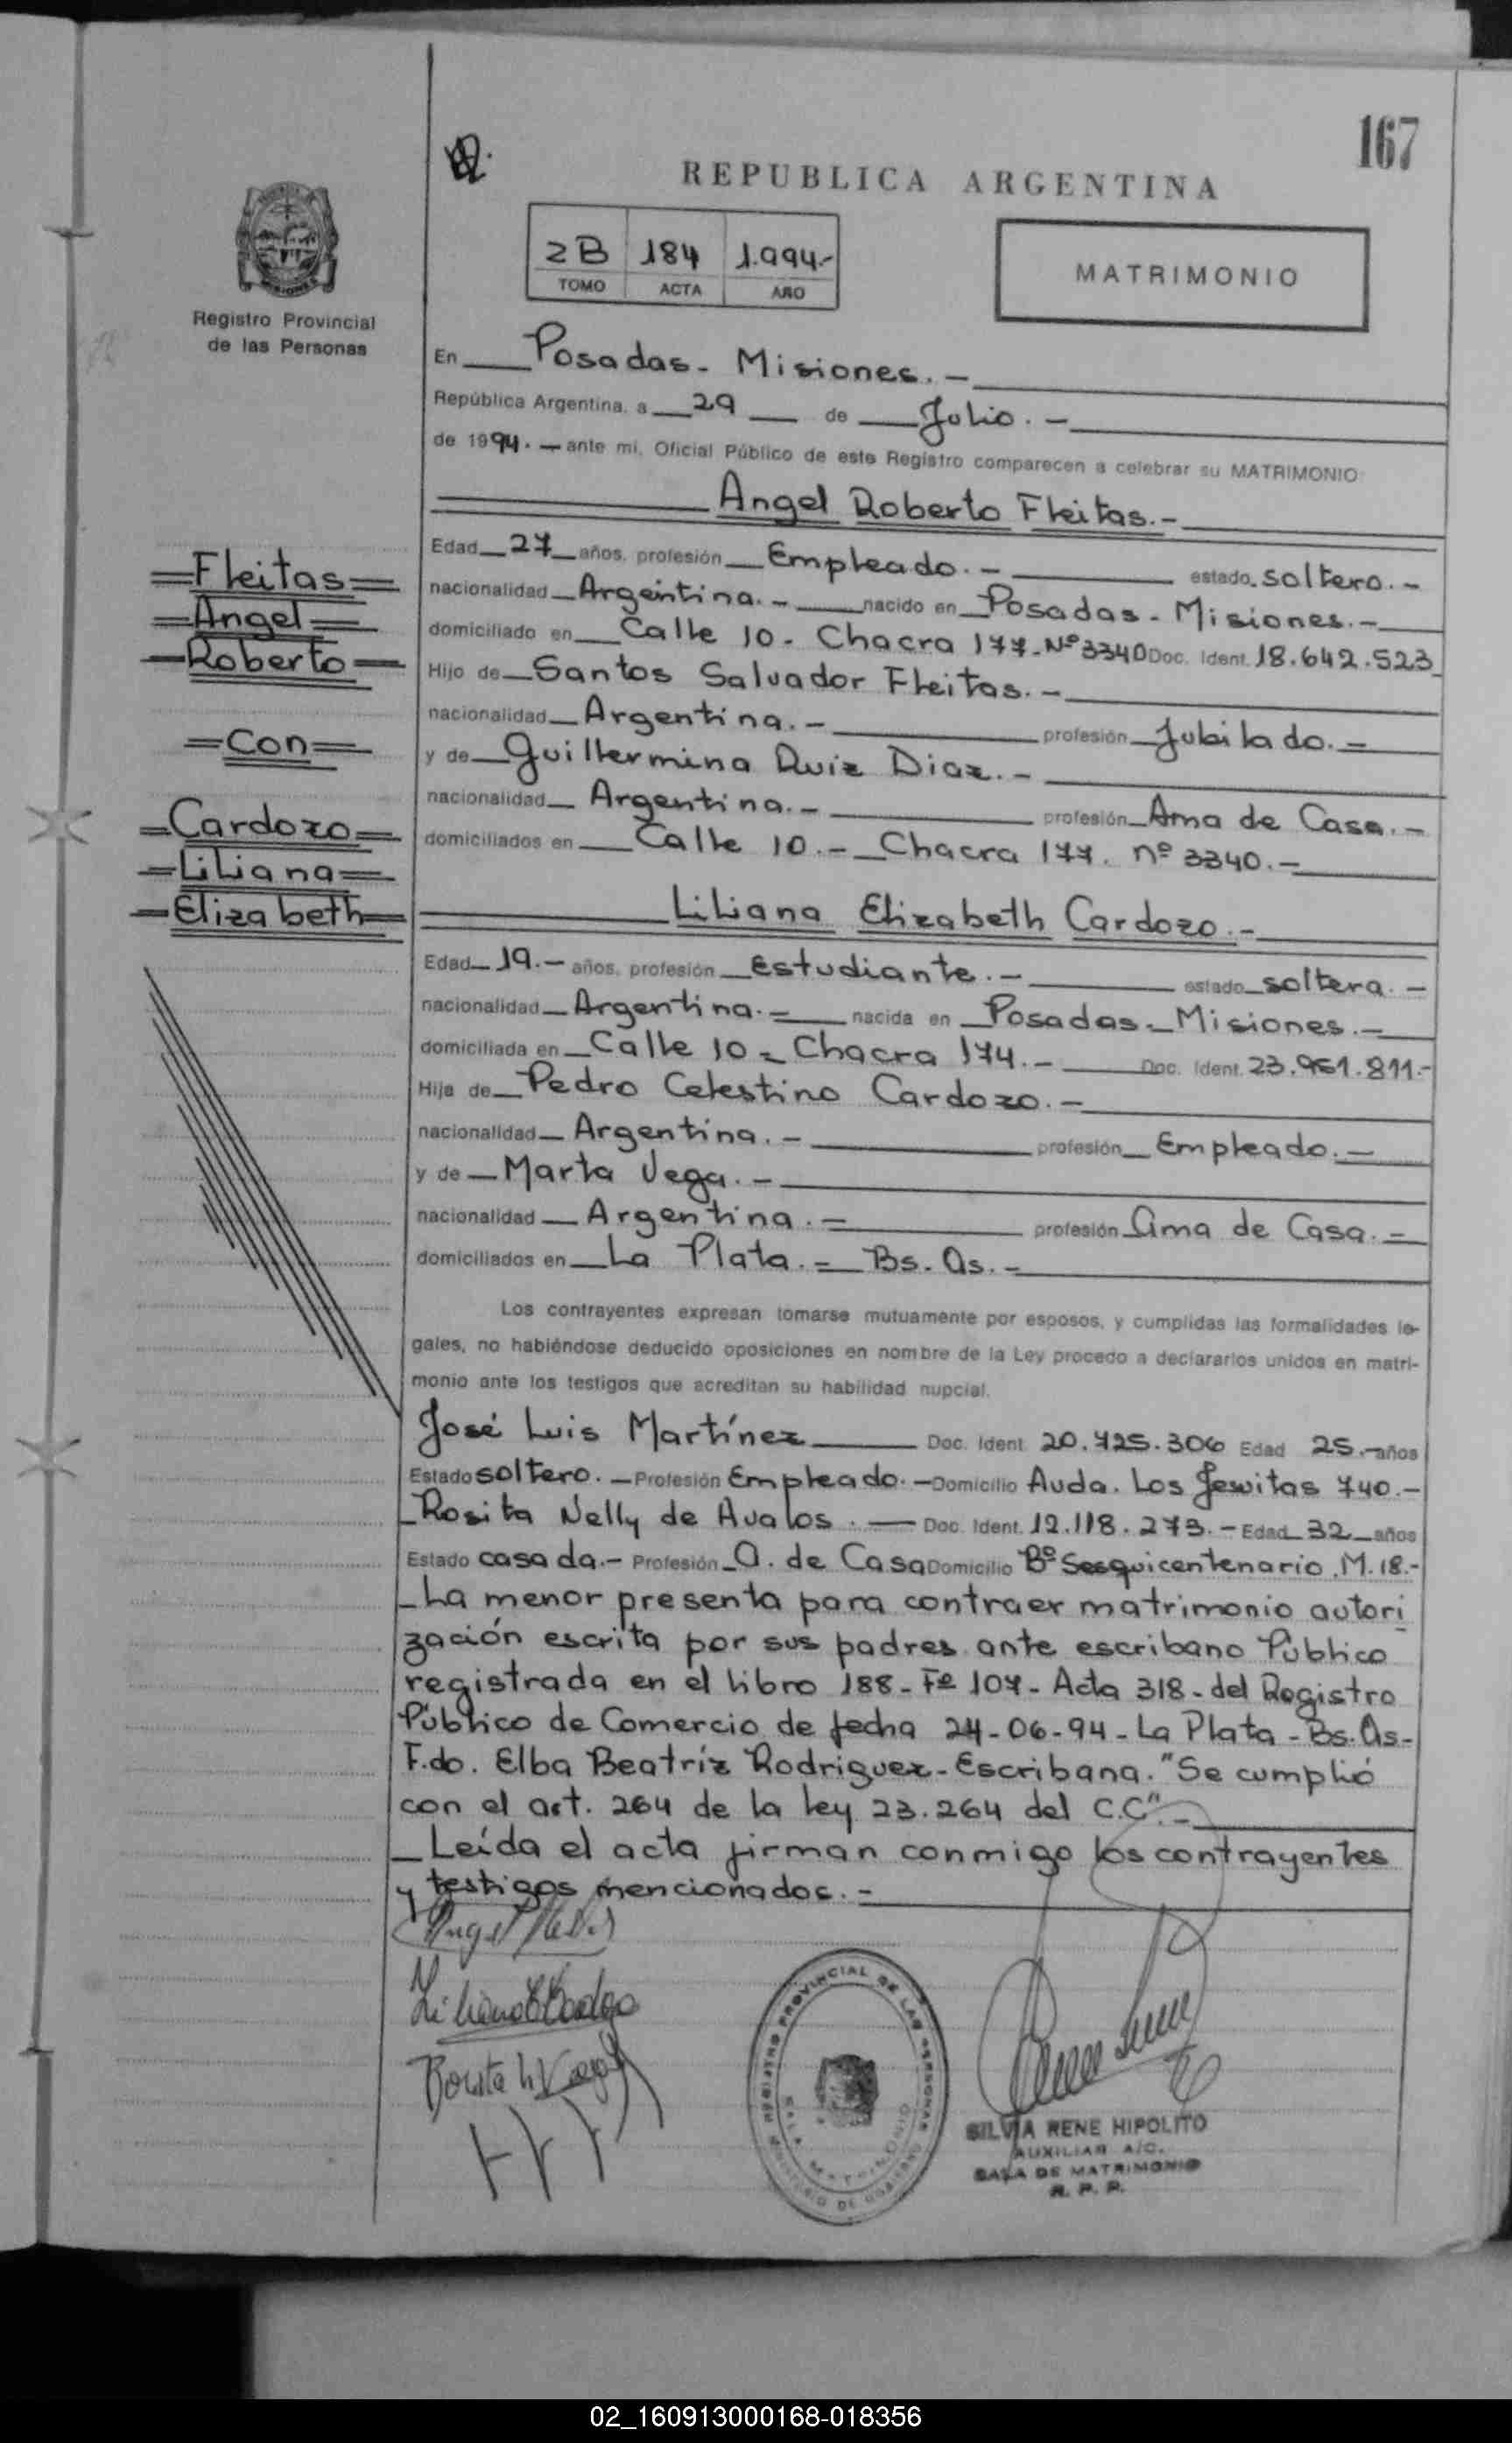 167
REPUBLICA ARGENTINA
2B 184 1.994.-
TOMO ACTA AÑO
MATRIMONIO
MISIONES
Registro Provincial
de las Personas
En Posadas - Misiones. -
República Argentina, a 29 de Julio. -
de 1994. - ante mi, Oficial Público de este Registro comparecen a celebrar su MATRIMONIO
Angel Roberto Fleitas. -
Edad 27 años, profesión Empleado. - estado soltero. -
nacionalidad Argentina. - nacido en Posadas - Misiones. -
domiciliado en Calle 10 - Chacra 177 - Nº 3340 Doc. Ident. 18.642.523
Hijo de Santos Salvador Fleitas. -
nacionalidad Argentina. - profesión Jubilado. -
y de Guillermina Ruiz Diaz. -
nacionalidad Argentina. - profesión Ama de Casa. -
domiciliados en Calle 10. - Chacra 177. nº 3340. -
=Fleitas=
=Angel=
-Roberto-
=Con=
=Cardozo=
=Liliana=
-Elizabeth=
Liliana Elizabeth Cardozo. -
Edad 19. - años, profesión Estudiante. - estado soltera. -
nacionalidad Argentina. - nacida en Posadas - Misiones. -
domiciliada en Calle 10 - Chacra 174. - Doc. Ident. 23.961.811.-
Hija de Pedro Celestino Cardozo. -
nacionalidad Argentina. - profesión Empleado. -
y de Marta Vega. -
nacionalidad Argentina. = profesión Ama de Casa. =
domiciliados en La Plata. = Bs. As. -
Los contrayentes expresan tomarse mutuamente por esposos, y cumplidas las formalidades le-
gales, no habiéndose deducido oposiciones en nombre de la Ley procedo a declararlos unidos en matri-
monio ante los testigos que acreditan su habilidad nupcial.
José Luis Martínez Doc. Ident. 20.725.306 Edad 25.- años
Estado soltero. - Profesión Empleado. - Domicilio Avda. Los Jesuitas 740.-
Rosita Nelly de Avalos. - Doc. Ident. 12.118.273. - Edad 32 años
Estado casada. - Profesión A. de Casa Domicilio Bº Sesquicentenario. M. 18.-
_La menor presenta para contraer matrimonio autori_
zación escrita por sus padres ante escribano Público
registrada en el libro 188 - Fº 107 - Acta 318 - del Registro
Público de Comercio de fecha 24-06-94 - La Plata - Bs. As -
F.do. Elba Beatríz Rodriguez - Escribana. "Se cumplió
con el art. 264 de la ley 23.264 del C.C". -
_Leída el acta firman conmigo los contrayentes
y testigos mencionados. -
REGISTRO PROVINCIAL DE LAS PERSONAS
SALA MATRIMONIO
MINISTERIO DE GOBIERNO
SILVIA RENE HIPOLITO
AUXILIAR A/C.
SALA DE MATRIMONIO
R. P. P.
02_160913000168-018356